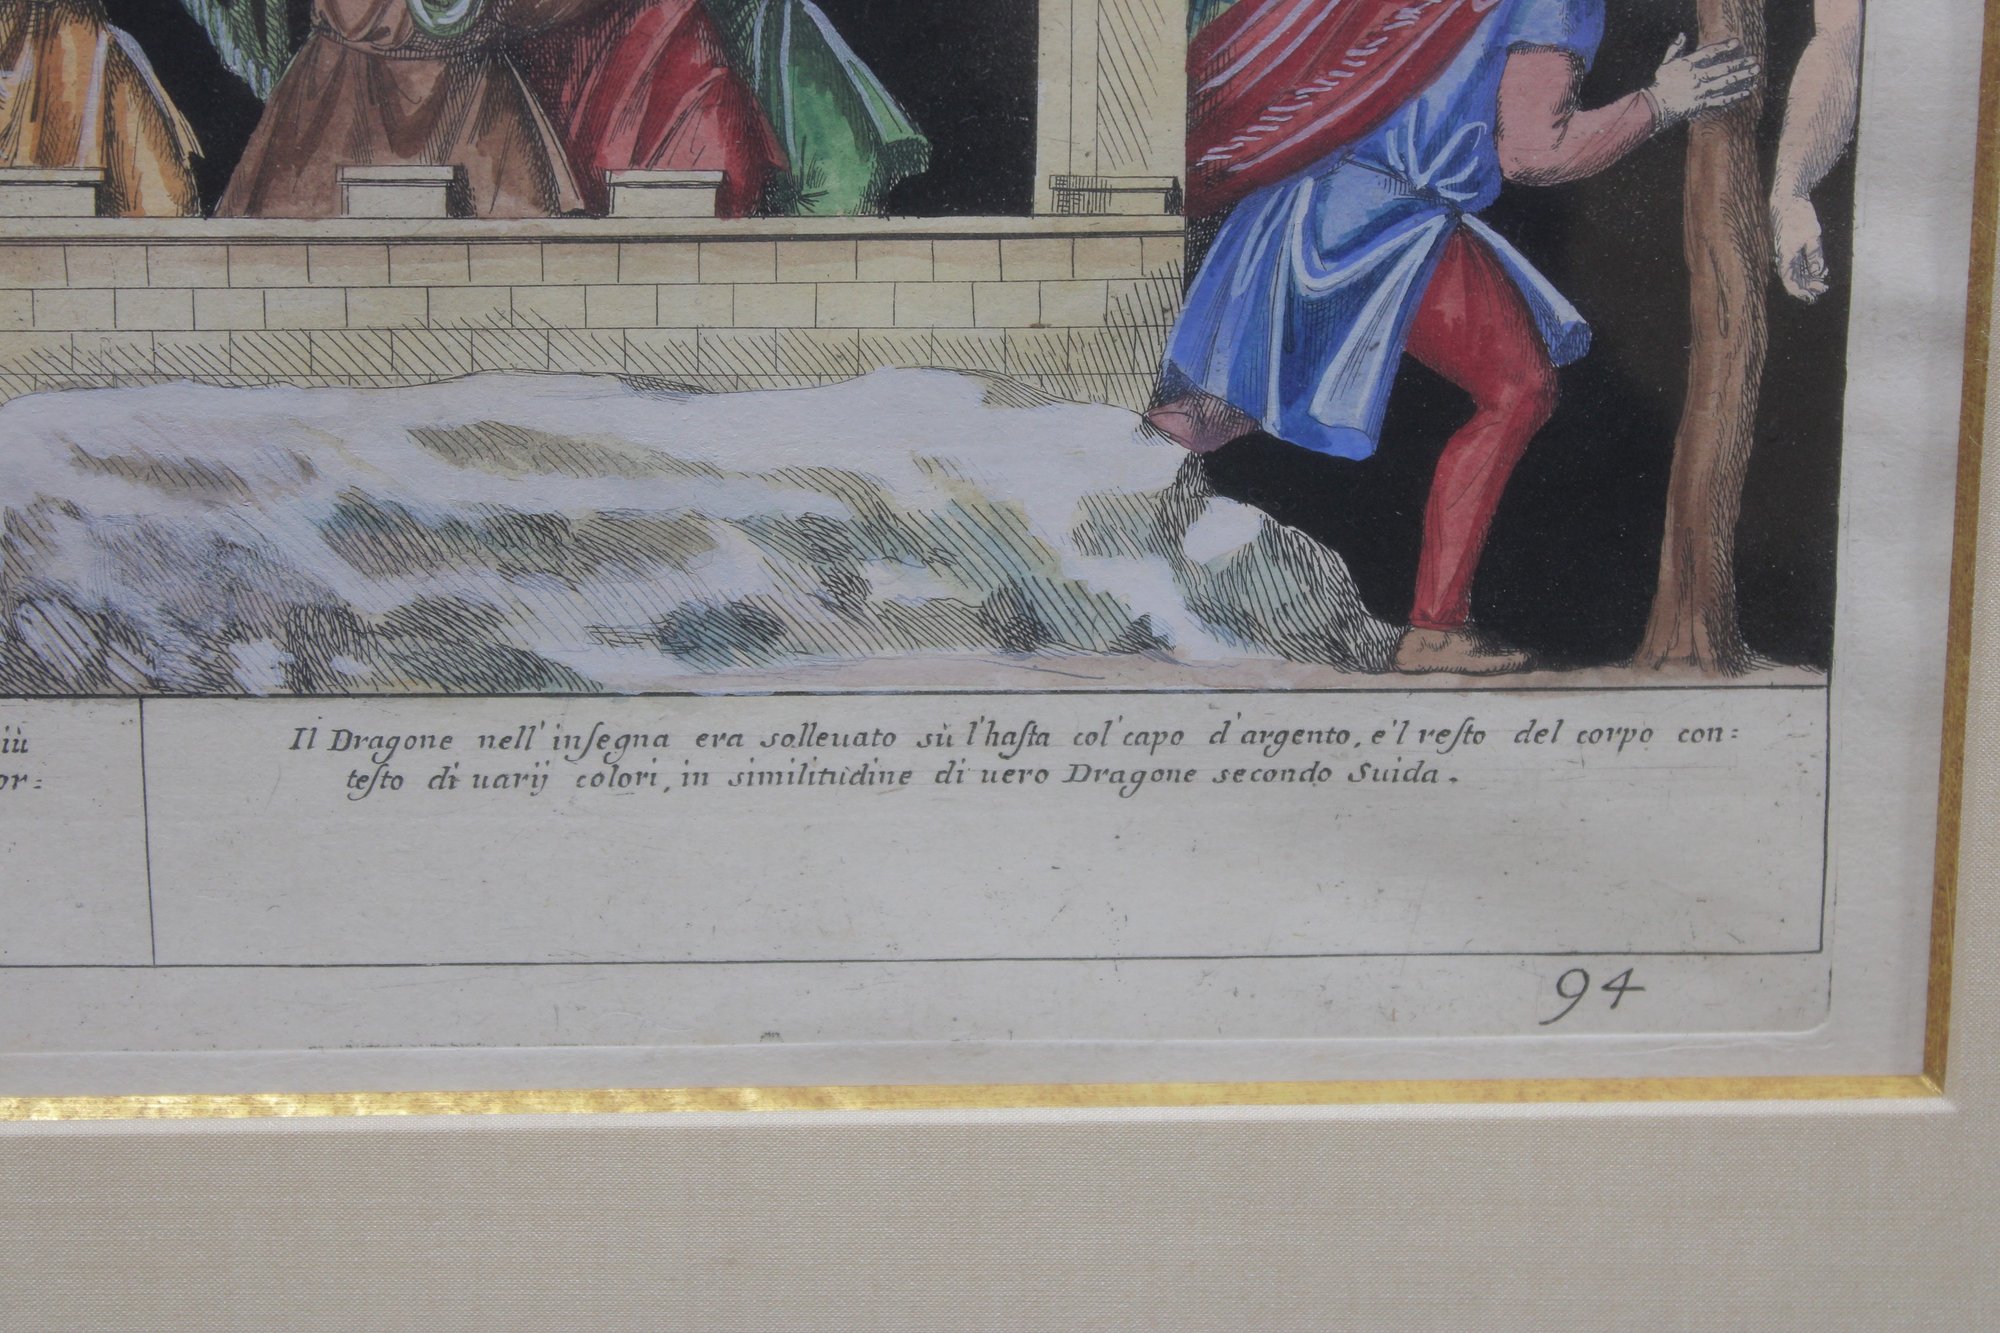 iù
or:
Il Dragone nell' inſegna era solleuato sù l'haſta col' capo d'argento, e'l reſto del corpo con:
teſto di uarij colori, in similitudine di uero Dragone secondo Suida.
94